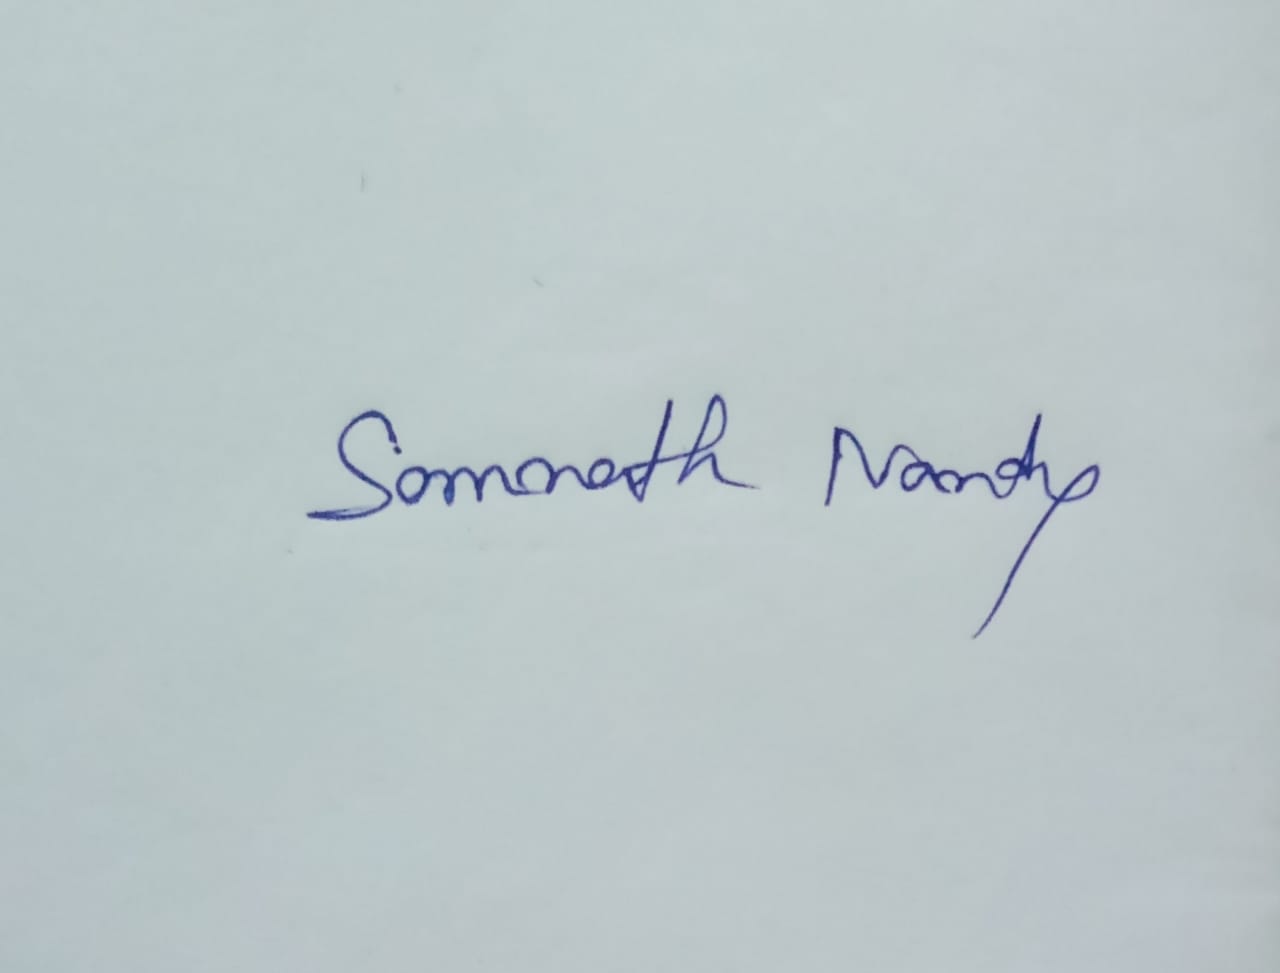 Somnath Nandy